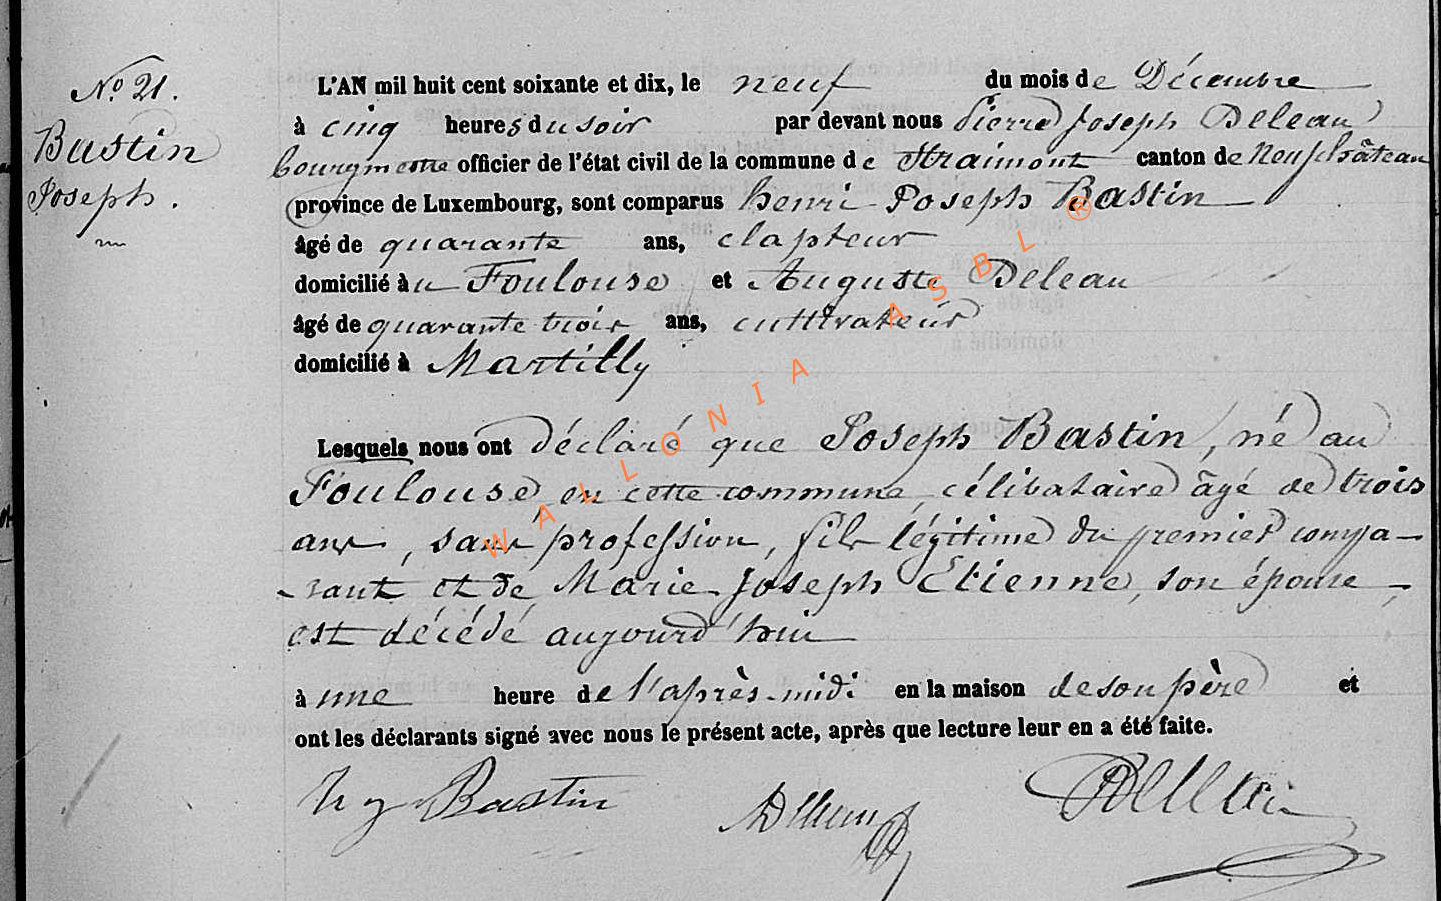 N.º 21.
Bastin
Joseph.
L'AN mil huit cent soixante et dix, le neuf du mois de Décembre
à cinq heures du soir par devant nous Pierre Joseph Deleau
bourgmestre officier de l'état civil de la commune de Straimont canton de Neufchâteau
province de Luxembourg, sont comparus henri Joseph Bastin
âgé de quarante ans, clapteur
domicilié à u Foulouse et Auguste Deleau
âgé de quarante trois ans, cultivateur
domicilié à Martilly
Lesquels nous ont déclaré que Joseph Bastin, né au
Foulouse en cette commune, célibataire âgé de trois
ans, sans profession, fils légitime du premier compa-
-rant et de Marie Joseph Etienne, son épouse,
est décédé aujourd'hui
à une heure de l'après-midi en la maison de son père et
ont les déclarants signé avec nous le présent acte, après que lecture leur en a été faite.
h J Bastin
WALLONIA ASBL ®